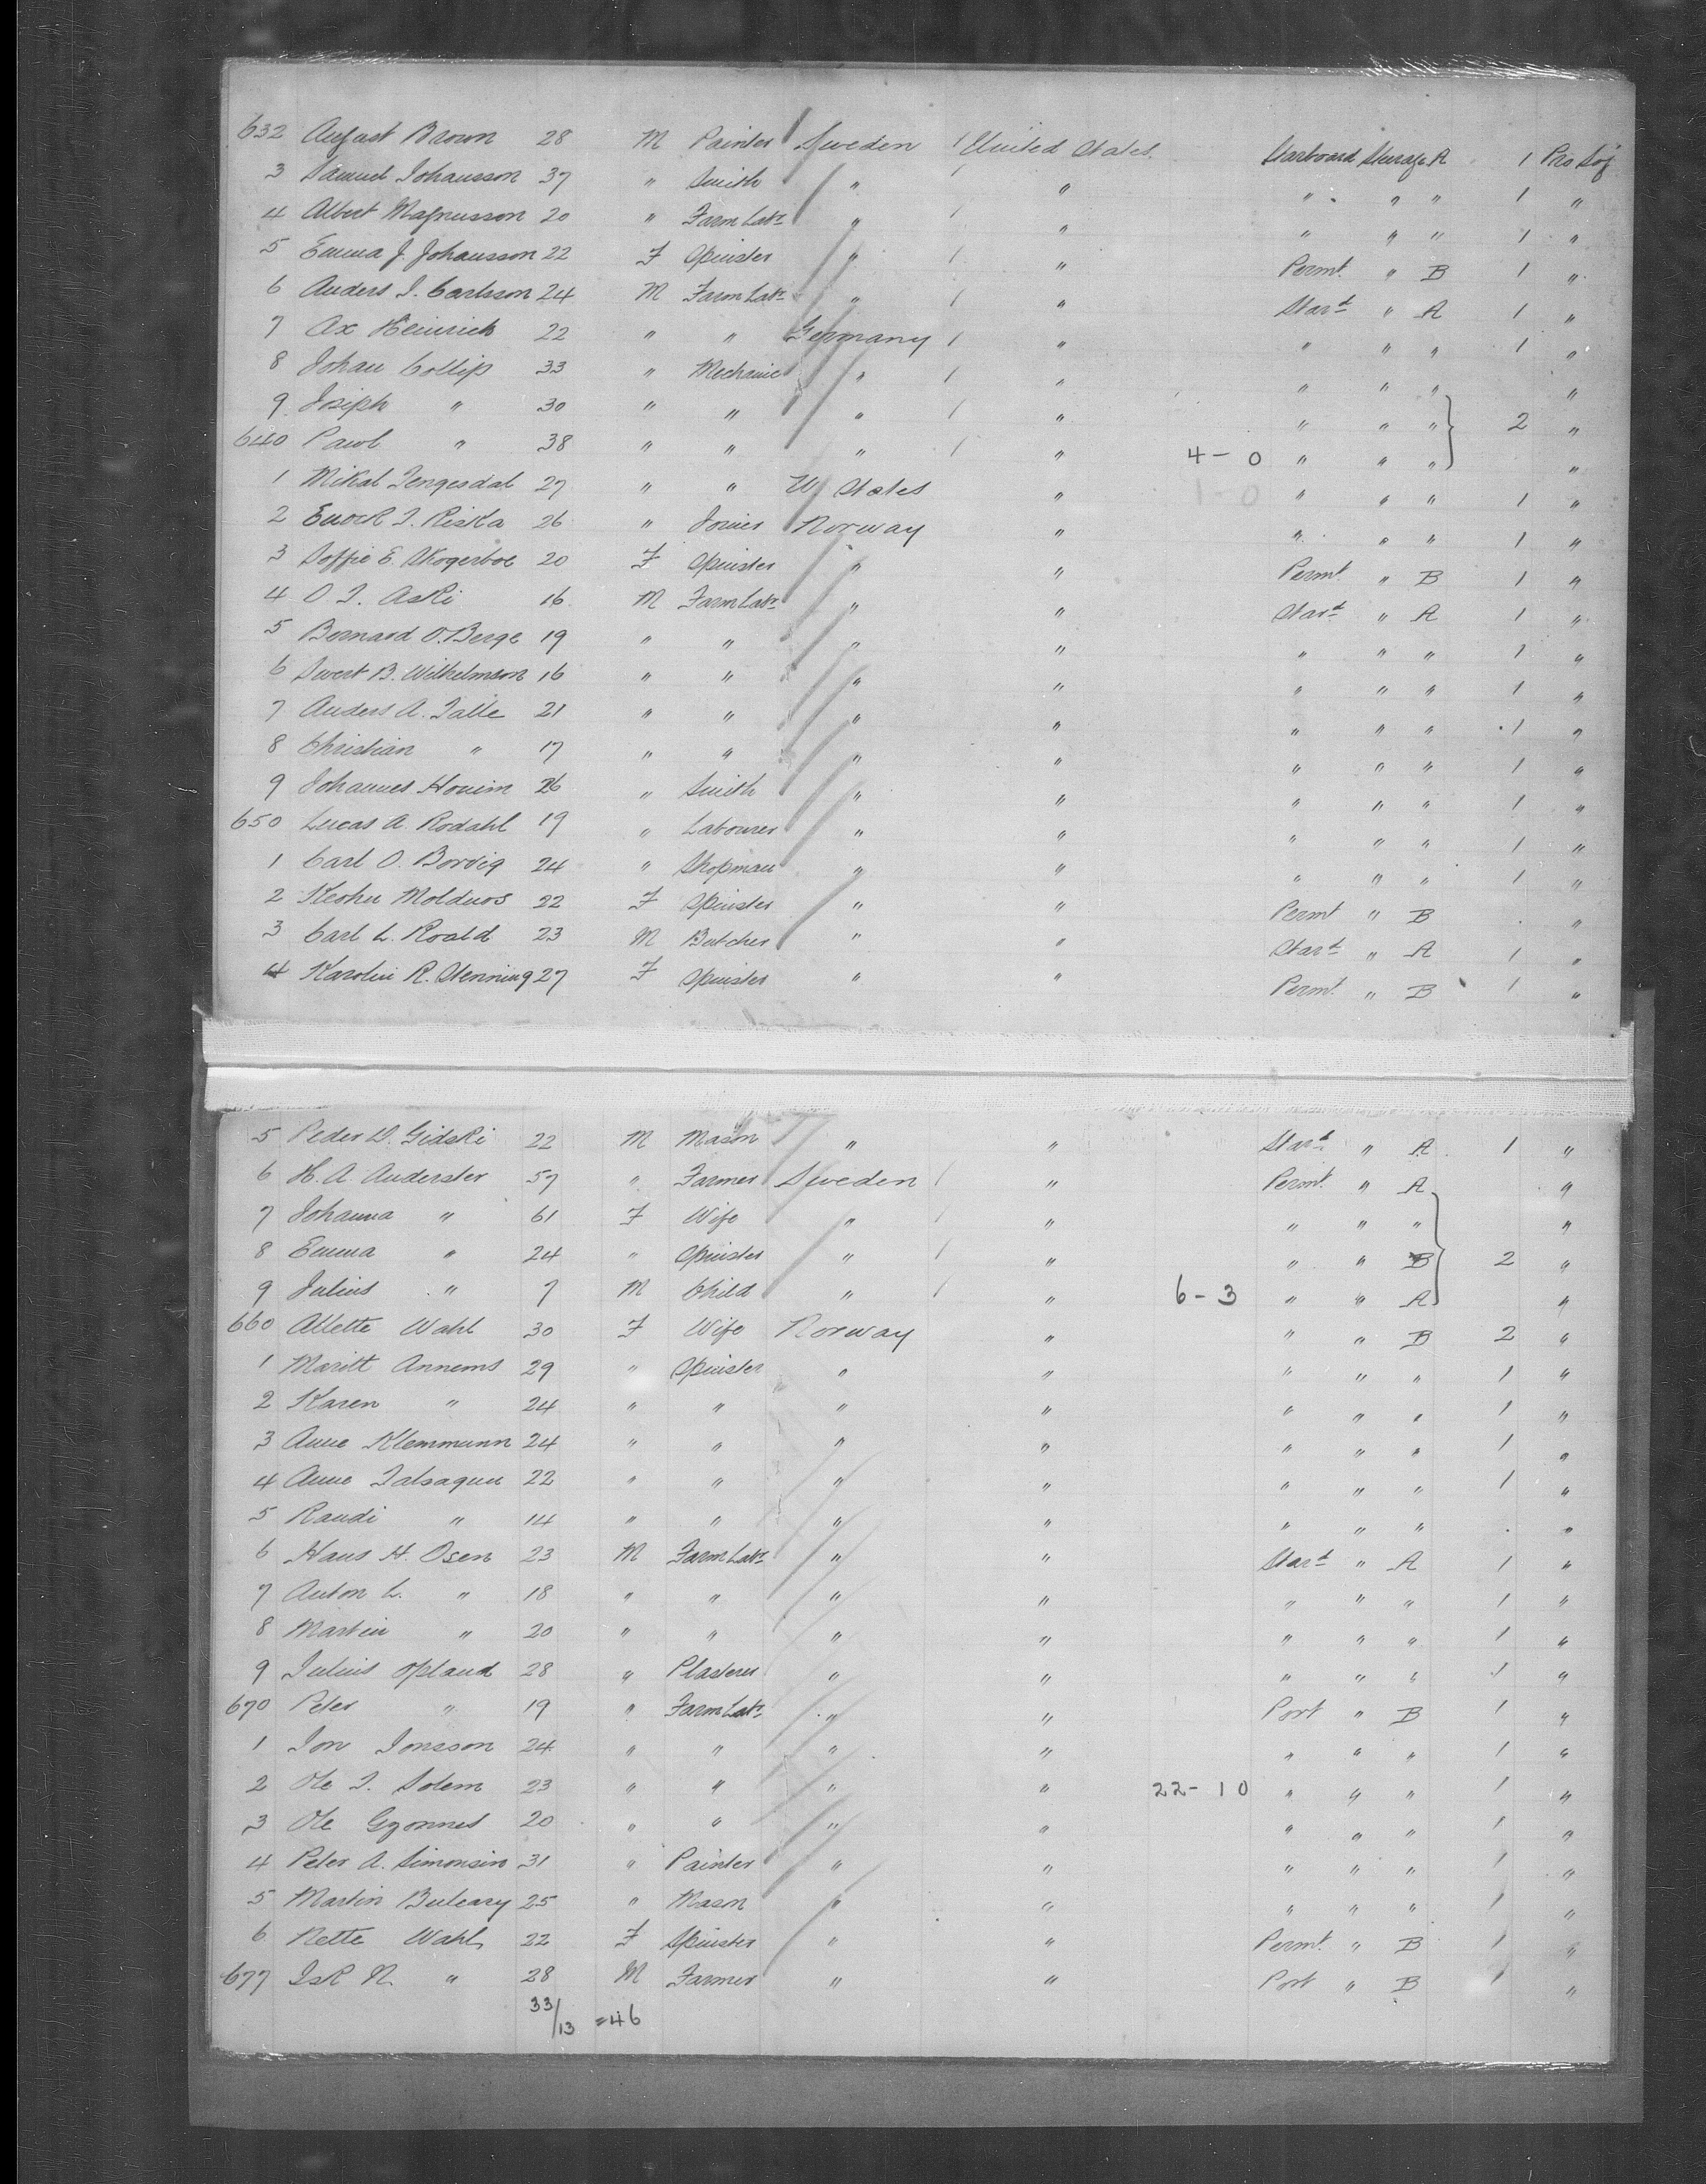 632 August Brown 28 M Painter Sweden 1 United States. Starboard Steerage A 1 Pro Soj
3 Samuel Johansson 37 " Smith " 1 " " " " 1 "
4 Albert Magnusson 20 " Farm Labr " 1 " " " " 1 "
5 Emma J. Johansson 22 F Spinster " 1 " Permt. " B 1 "
6 Anders J. Carlsson 24 M Farm Labr " 1 " Stard " A 1 "
7 Ax Heinrich 22 " " Germany 1 " " " " 1 "
8 Johan Collip 33 " Mechanic " 1 " " " " "
9 Joseph " 30 " " " 1 " " " " 2 "
640 Pawl " 38 " " " 1 " 4-0 " " " "
1 Mikal Tengesdal 27 " " U States " 1-0 " " " 1 "
2 Enock T. Riska 26 " Joiner Norway " " " " 1 "
3 Soffie E. Skogerboe 20 F Spinster " " Permt. " B 1 "
4 O. T. Aski 16 M Farm Labr " " Stard " A 1 "
5 Bernard O. Berge 19 " " " " " " " 1 "
6 Sivert B. Wilhelmson 16 " " " " " " " 1 "
7 Anders A. Talle 21 " " " " " " " 1 "
8 Christian " 17 " " " " " " " 1 "
9 Johannes Hovim 26 " Smith " " " " " 1 "
650 Lucas A. Rodahl 19 " Labourer " " " " " 1 "
1 Carl O. Borvig 24 " Shopman " " " " " 1 "
2 Molduos 22 F Spinster " " Permt " B "
3 Carl L. Roald 23 M Butcher " " Stard " A 1 "
4 Karolin R. Stenning 27 F Spinster " " Permt. " B 1 "
5 Peder D. Gidski 22 M Mason " " Stard " A 1 "
6 H. A. Anderster 57 " Farmer Sweden 1 " Permt. " A "
7 Johanna " 61 F Wife " 1 " " " " "
8 Emma " 24 " Spinster " 1 " " " B 2 "
9 Julius " 7 M Child " 1 " 6-3 " " A "
660 Allette Wahl 30 F Wife Norway " " " B 2 "
1 Maritt Annems 29 " Spinster " " " " " 1 "
2 Karen " 24 " " " " " " " 1 "
3 Anne Klemmunn 24 " " " " " " " 1 "
4 Anne Talsagun 22 " " " " " " " 1 "
5 Randi " 14 " " " " " " " "
6 Hans H. Osen 23 M Farm Labr " " Stard " A 1 "
7 Anton L. " 18 " " " " " " " 1 "
8 Martin " 20 " " " " " " " 1 "
9 Julius Opland 28 " Plasterer " " " " " 1 "
670 Peter " 19 " Farm Labr " " Port " B 1 "
1 Jon Jonsson 24 " " " " " " " 1 "
2 Ole T. Solem 23 " " " " 22-10 " " " 1 "
3 Ole Gyonnes 20 " " " " " " " 1 "
4 Peter A. Simonsin 31 " Painter " " " " " 1 "
5 Martin Buleary 25 " Mason " " " " " 1 "
6 Nette Wahl 22 F Spinster " " Permt. " B 1 "
677 Isk N. " 28 M Farmer " " Port " B 1 "
33/13 =46